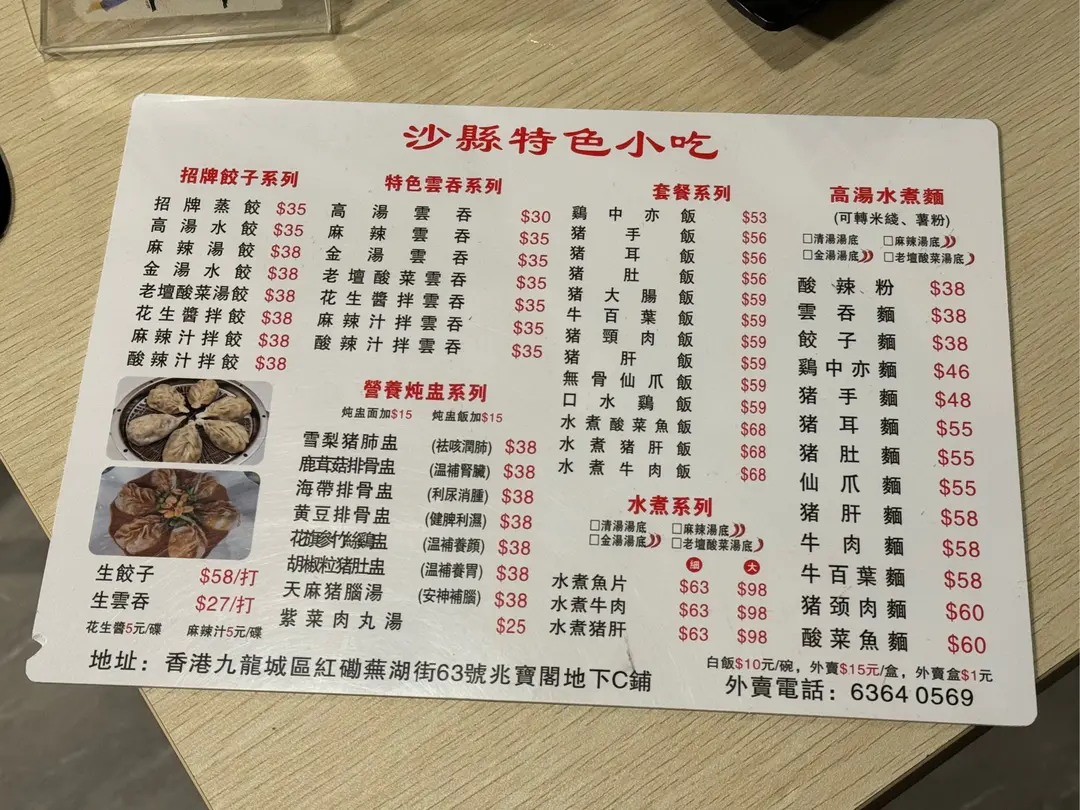 沙縣特色小吃
招牌餃子系列
招牌蒸餃 $35
高湯水餃 $35
麻辣湯餃 $38
金湯水餃 $38
老壇酸菜湯餃 $38
花生醬拌餃 $38
麻辣汁拌餃 $38
酸辣汁拌餃 $38
生餃子 $58/打
生雲吞 $27/打
花生醬5元/碟 麻辣汁5元/碟
特色雲吞系列
高湯雲吞 $30
麻辣雲吞 $35
金湯雲吞 $35
老壇酸菜雲吞 $35
花生醬拌雲吞 $35
麻辣汁拌雲吞 $35
酸辣汁拌雲吞 $35
營養炖盅系列
炖盅面加$15 炖盅飯加$15
雪梨猪肺盅 (祛咳潤肺) $38
鹿茸菇排骨盅 (温補腎臟) $38
海帶排骨盅 (利尿消腫) $38
黄豆排骨盅 (健脾利濕) $38
花旗參竹絲鷄盅 (温補養顔) $38
胡椒粒猪肚盅 (温補養胃) $38
天麻猪腦湯 (安神補腦) $38
紫菜肉丸湯 $25
套餐系列
鷄中亦飯 $53
猪手飯 $56
猪耳飯 $56
猪肚飯 $56
猪大腸飯 $59
牛百葉飯 $59
猪頸肉飯 $59
猪肝飯 $59
無骨仙爪飯 $59
口水鷄飯 $59
水煮酸菜魚飯 $68
水煮猪肝飯 $68
水煮牛肉飯 $68
水煮系列
□清湯湯底 □麻辣湯底
□金湯湯底 □老壇酸菜湯底
細 大
水煮魚片 $63 $98
水煮牛肉 $63 $98
水煮猪肝 $63 $98
高湯水煮麵
(可轉米綫、薯粉)
□清湯湯底 □麻辣湯底
□金湯湯底 □老壇酸菜湯底
酸辣粉 $38
雲吞麵 $38
餃子麵 $38
鷄中亦麵 $46
猪手麵 $48
猪耳麵 $55
猪肚麵 $55
仙爪麵 $55
猪肝麵 $58
牛肉麵 $58
牛百葉麵 $58
猪颈肉麵 $60
酸菜魚麵 $60
白飯$10元/碗，外賣$15元/盒，外賣盒$1元
地址：香港九龍城區紅磡蕪湖街63號兆寶閣地下C鋪
外賣電話：6364 0569